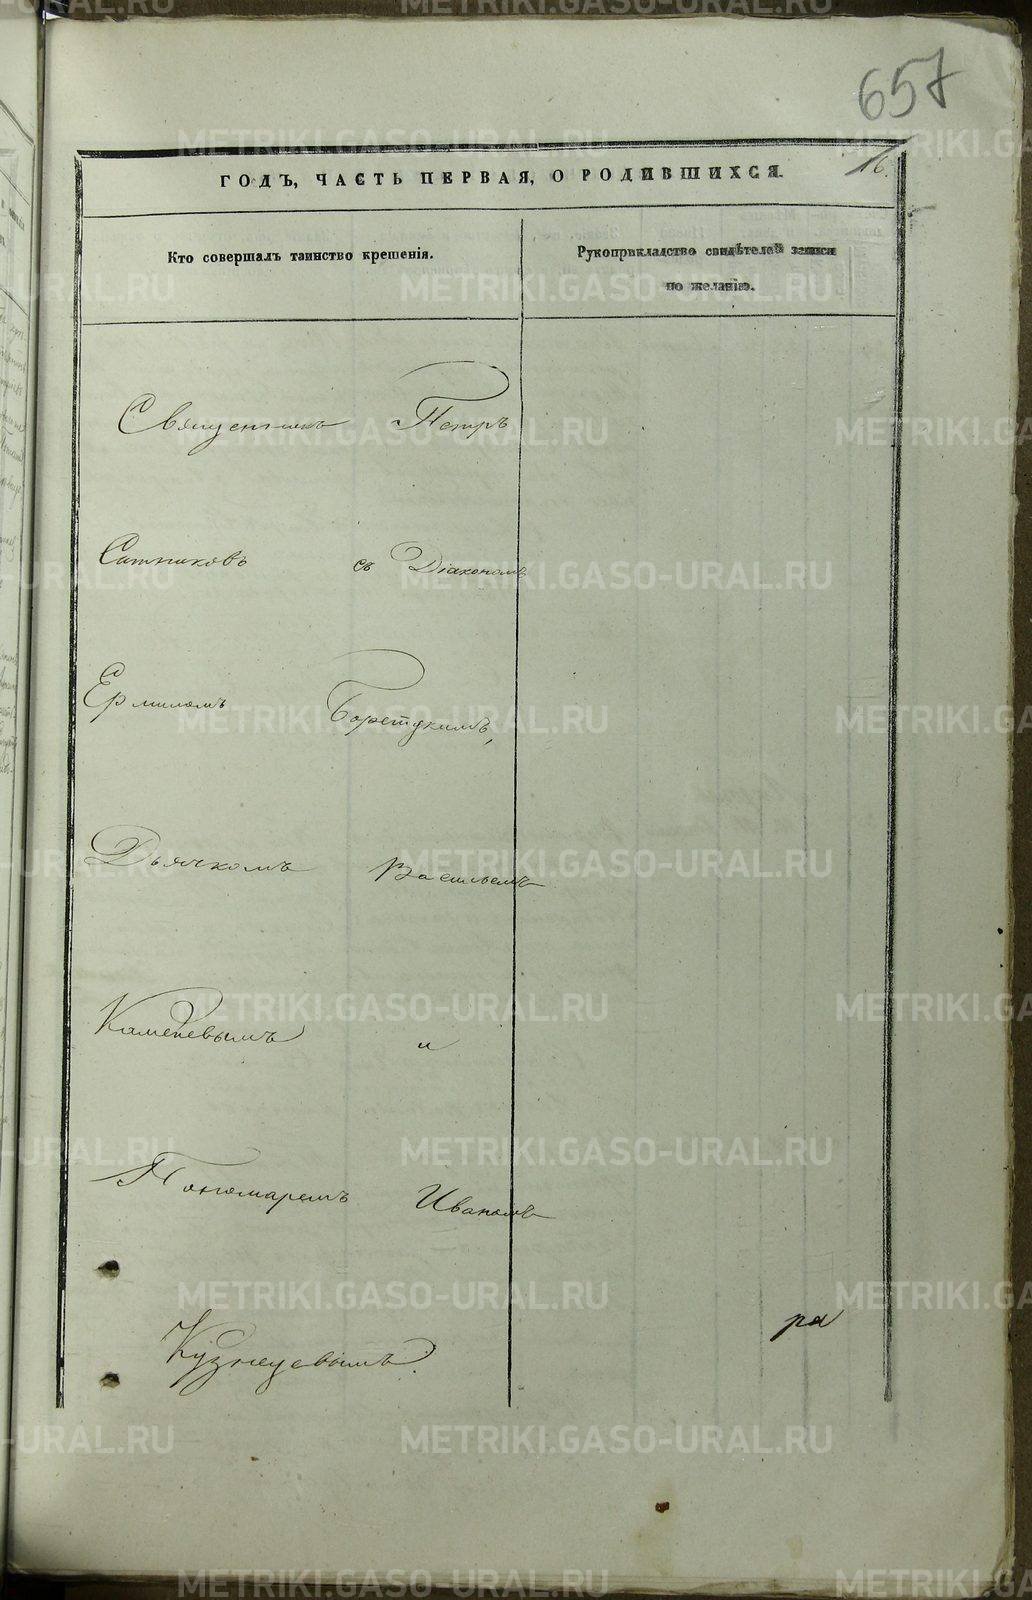 657
ГОДЪ, ЧАСТЬ ПЕРВАЯ, О РОДИВШИХСЯ.
16.
Кто совершалъ таинство крещенія.
Рукоприкладство свидѣтелей записи
по желанію.
Священникъ Петръ
Ситниковъ съ Діакономъ
Ермиломъ
Дьячкомъ Васильемъ
Каменевымъ и
Пономаремъ Иваномъ
Кузнецевымъ.
ра
METRIKI.GASO-URAL.RU